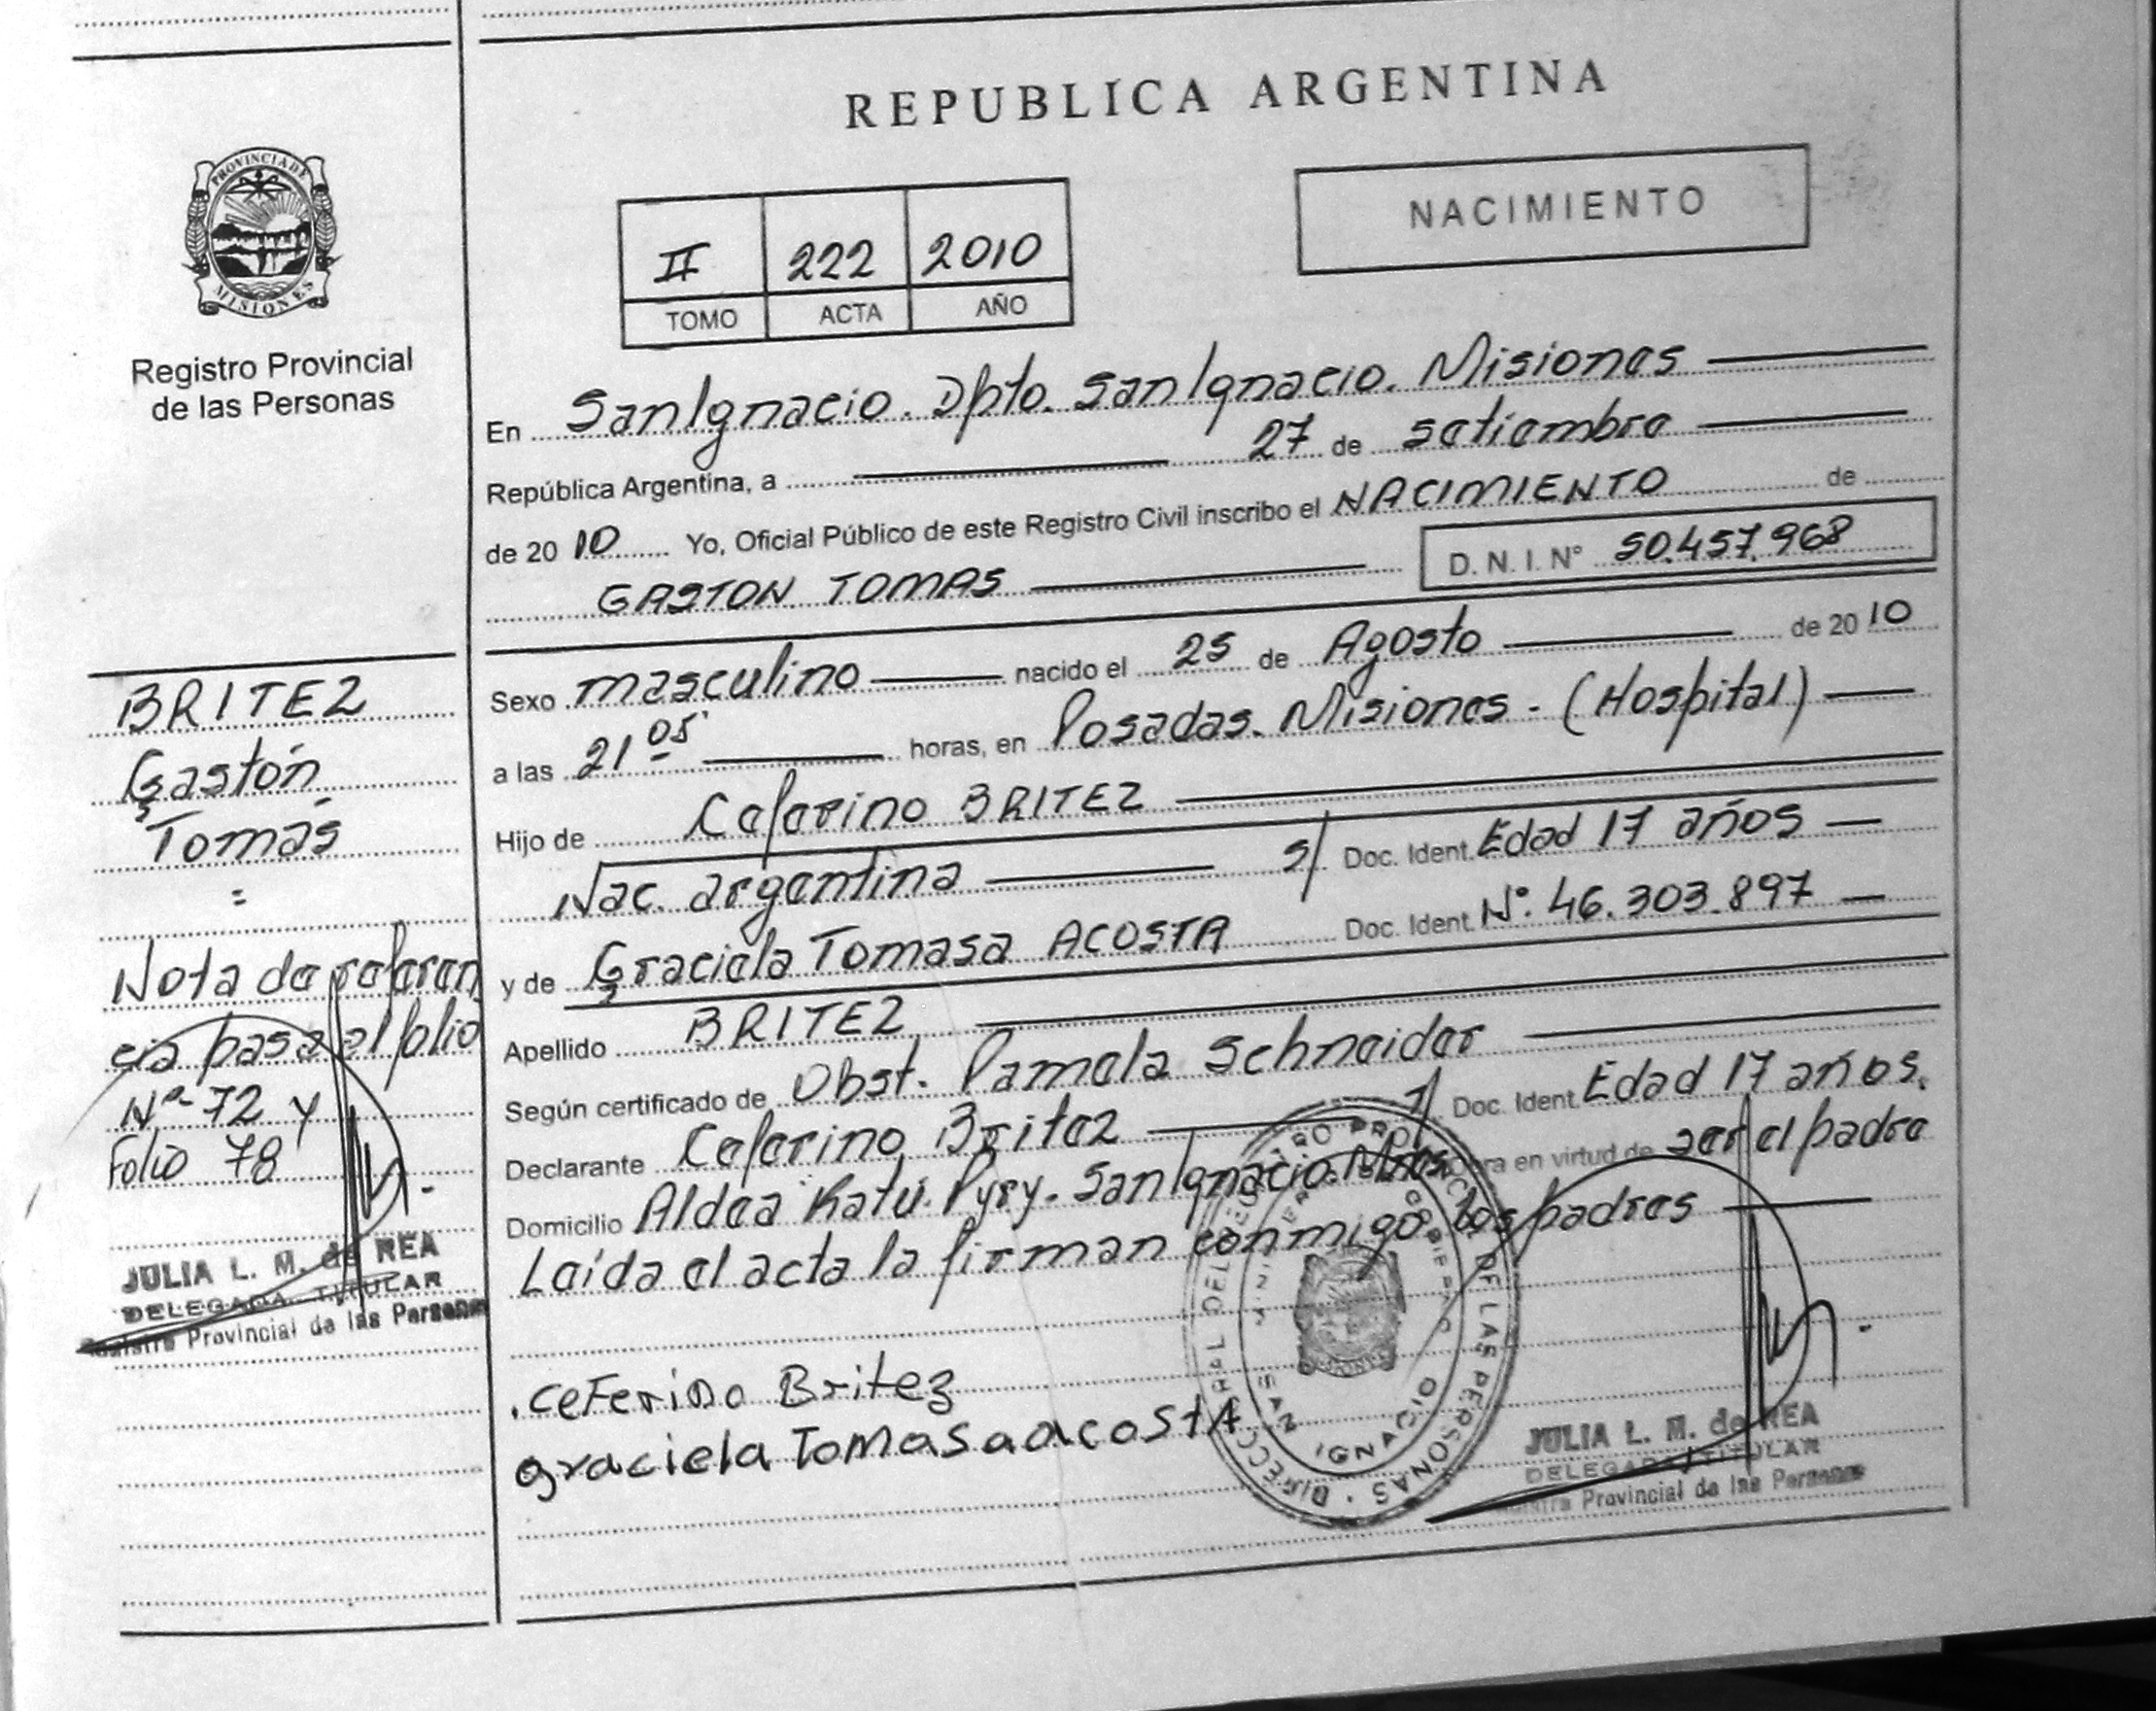 REPUBLICA ARGENTINA
NACIMIENTO
II 222 2010
TOMO ACTA AÑO
PROVINCIA DE
MISIONES
Registro Provincial
de las Personas
En San Ignacio. Dpto. San Ignacio. Misiones
República Argentina, a 27 de setiembre
de 20 10 Yo, Oficial Público de este Registro Civil inscribo el NACIMIENTO de
GASTON TOMAS D. N. I. N° 50.457.968
Sexo masculino nacido el 25 de Agosto de 20 10
a las 21 05' horas, en Posadas. Misiones - (Hospital)
Hijo de Ceferino BRITEZ
Nac. argentina s/ Doc. Ident. Edad 17 años
y de Graciela Tomasa ACOSTA Doc. Ident. N°. 46.303.897
Apellido BRITEZ
Según certificado de Obst. Pamela Schneider
Declarante Ceferino Britez s/ Doc. Ident. Edad 17 años.
Domicilio Aldea Katú. Pyry. San Ignacio. Mnes. obra en virtud de ser el padre
Leída el acta la firman conmigo los padres
ceferino Britez
graciela Tomasa acostA
BRITEZ
Gastón
Tomás
=
Nota de referen
cia pasa al folio
Nº 72 y
Folio 78
JULIA L. M. de REA
DELEGADA TITULAR
Registro Provincial de las Personas
DIRECC GRAL DEL REGISTRO PROVINCIAL DE LAS PERSONAS
SAN IGNACIO
JULIA L. M. de REA
DELEGADA TITULAR
Registro Provincial de las Personas